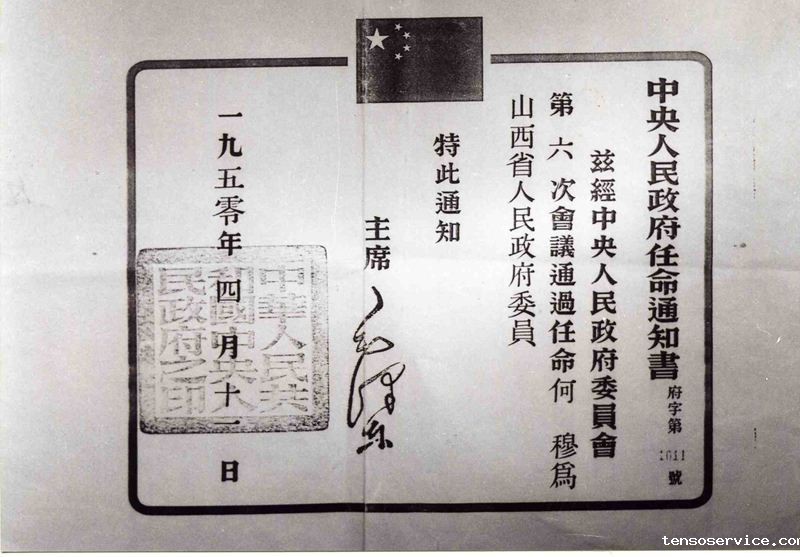 中央人民政府任命通知書
府字第1011號
兹經中央人民政府委員會
第六次會議通過任命何 穆爲
山西省人民政府委員
特此通知
主席
毛澤東
一九五零年四月十一日
中華人民共
和國中央人
民政府之印
tensoservice.com